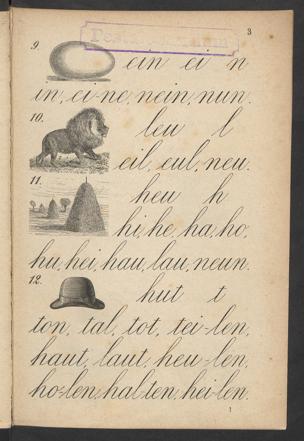 3
9. ein ei n
in, ei-ne, nein, nun.
10. leu l
eil, eul, neu.
11. heu h
hi, he, ha, ho,
hu, hei, hau, lau, neun.
12. hut t
ton, tal, tot, tei-len,
haut, laut, heu-len,
ho-len, hal-ten, hei-len.
1